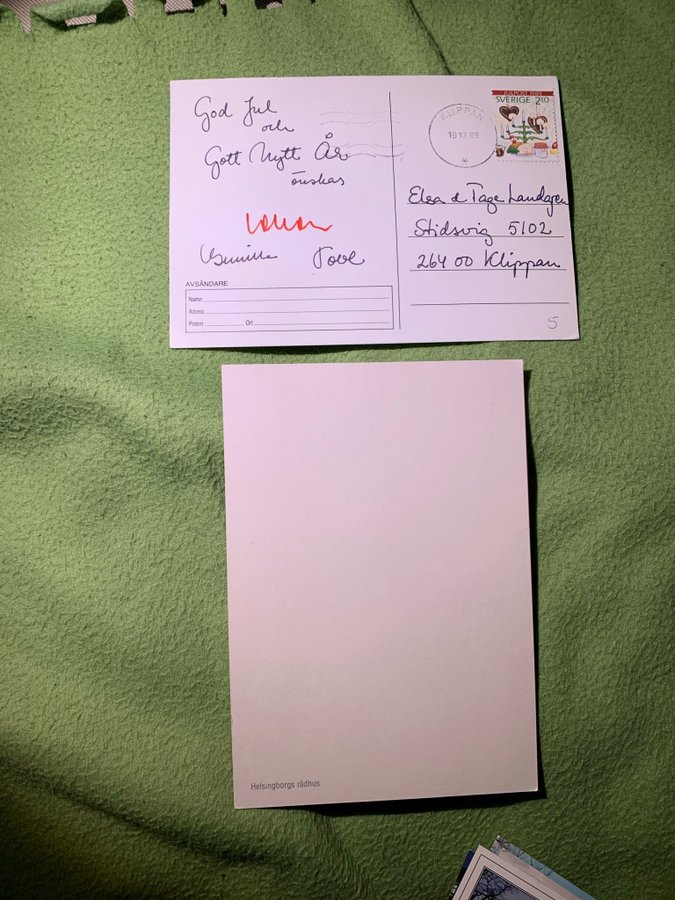 God Jul
och
Gott Nytt År
önskas
Gunilla Tove
AVSÄNDARE
Namn
Adress
Postnr Ort
JULPOST 1989
SVERIGE 2.10
KLIPPAN
19.12.89
*
Elsa & Tage Landgren
Stidsvig 5102
264 00 Klippan
5
Helsingborgs rådhus